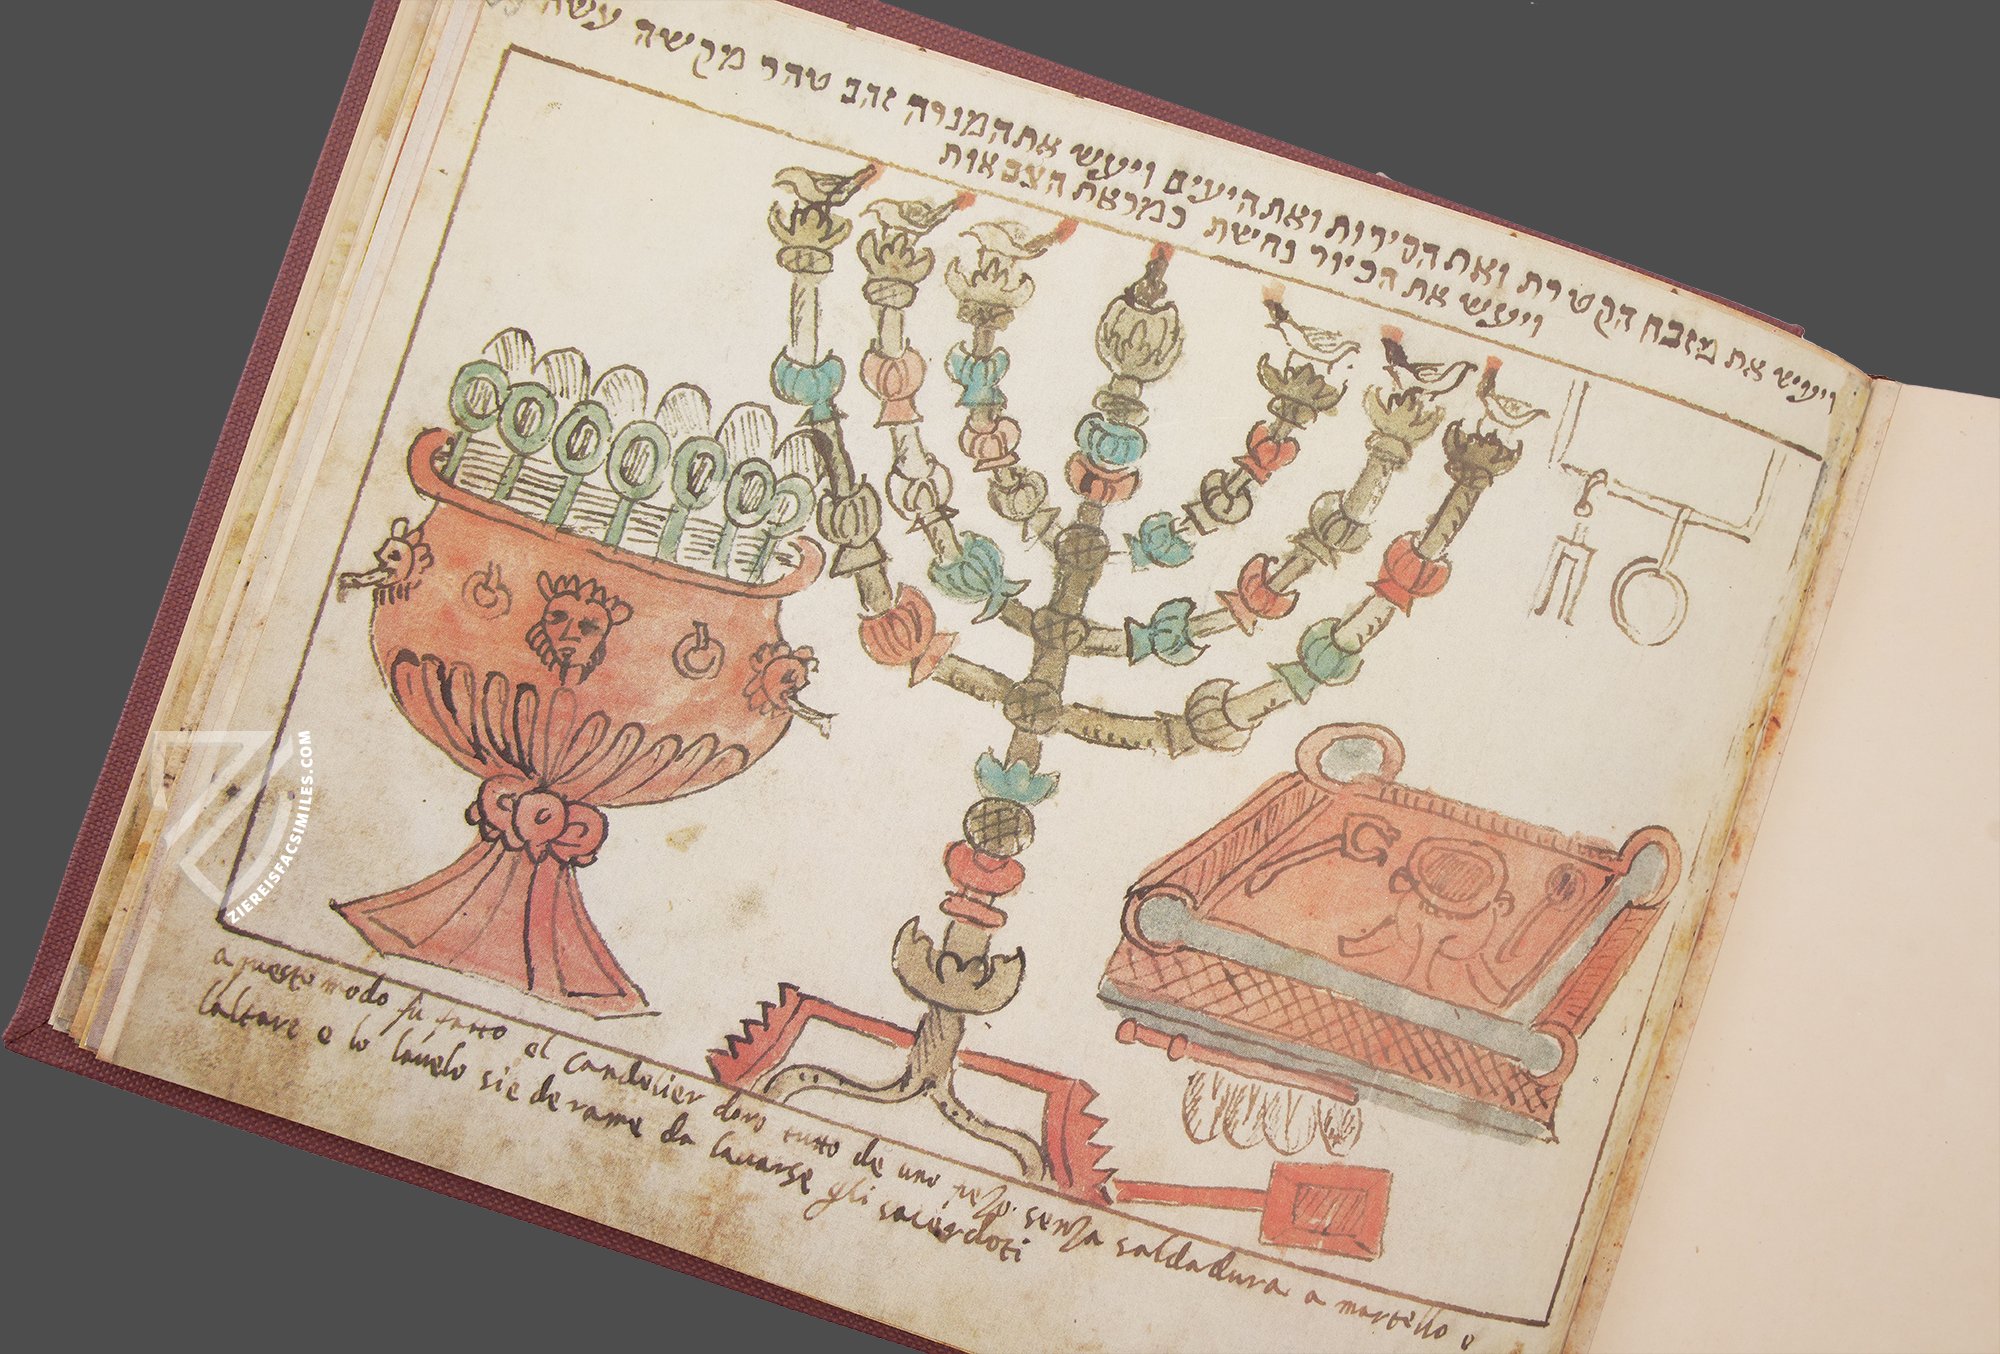 ויעש את מזבח הקטרת ואת הסירות ואת היעים ויעש את המנרה זהב טהר מקשה עשה
ויעש את הכיור נחשת כמראת הצבאות
a questo modo fu fatto el candelier doro tutto de uno pezo senza saldadura a martello e
laltare e lo lauelo sie de rame da lauarse gli sacerdoti
ZIEREISFACSIMILES.COM